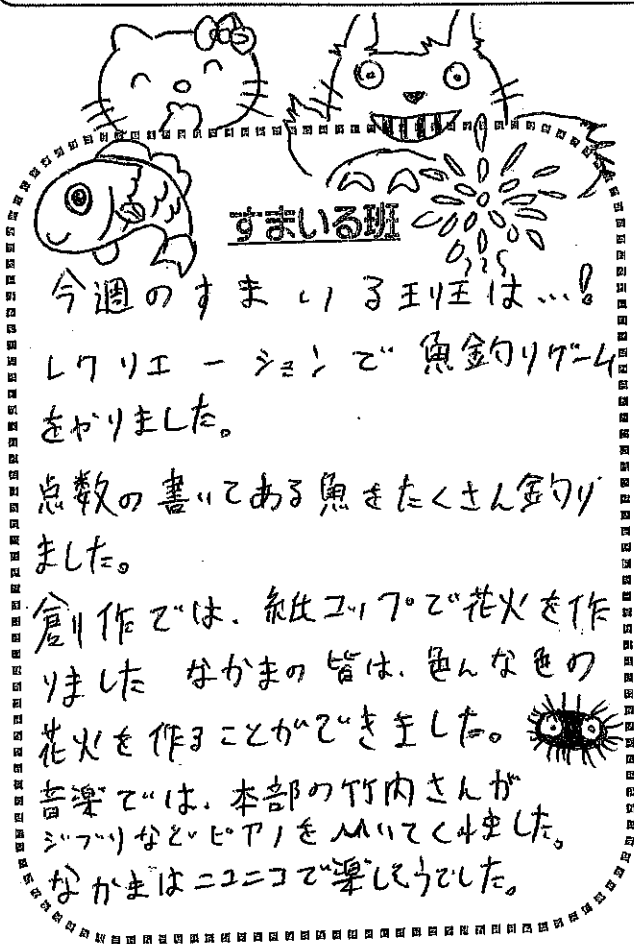 すまいる班
今週のすまいる班は…!
レクリエーションで魚釣りゲーム
をやりました。
点数の書いてある魚をたくさん釣り
ました。
創作では、紙コップで花火を作
りました なかまの皆は、色んな色の
花火を作ることができました。
音楽では、本部の竹内さんが
ジブリなどピアノを弾いてくれました。
なかまはニコニコで楽しそうでした。